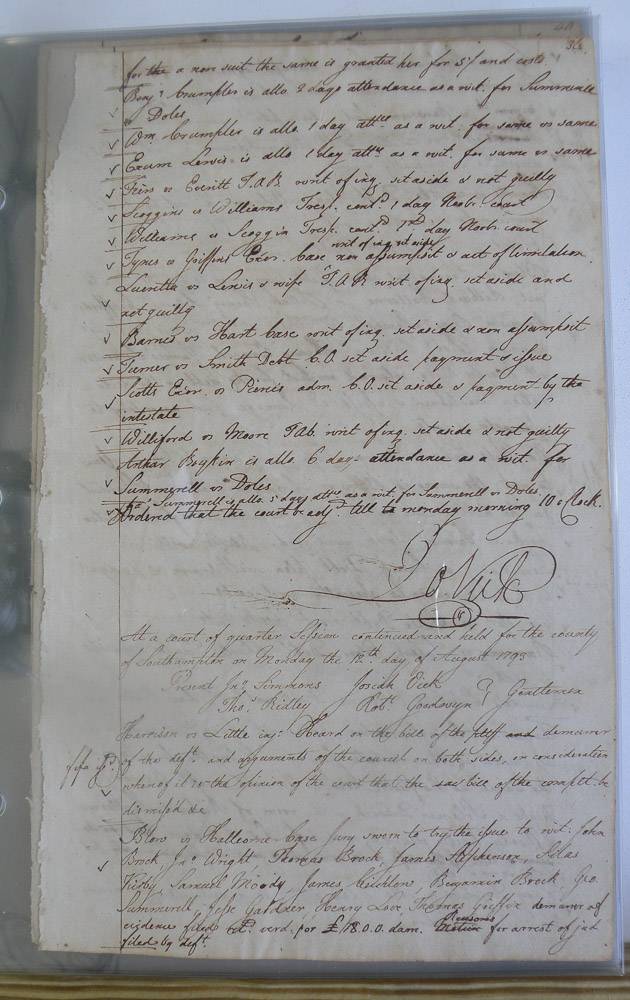 for the a non suit the same is granted her for 5/ and costs
Benj.n Crumpler is allo. 2 days attendance as a wit. for Summerell
vs Doles
Wm. Crumpler is allo. 1 day attce as a wit. for same vs same
Exum Lewis is allo. 1 day attce as a wit. for same vs same
vs Everitt T.A.B. writ of inq. set aside & not guilty
Scoggins vs Williams Tresp. contd. 1 day Novr. court
Williams vs Scoggin Tresp. contd. 1st day Novr. court
writ of inq. set aside
Tynes vs Griffins Exor. case non assumpsit & act of limitation
Lucretia vs Lewis & wife T.A.B. writ of inq. set aside and
not guilty
Barnes vs Hart case writ of inq. set aside & non assumpsit
Turner vs Smith Debt C.O. set aside payment & issue
Scotts Exor. vs adm. C.O. set aside & payment by the
intestate
Williford vs Moore TAB. writ of inq. set aside & not guilty
Arthur Boykin is allo. 6 days attendance as a wit. for
Summerell vs Doles
Summerell is allo. 5 days attce as a wit. for Summerell vs Doles
Ordered that the court be adjd. till to monday morning 10 o Clock.
Jo Vick
At a court of quarter Session continued and held for the county
of Southampton on Monday the 12th. day of August 1793
Present Jno. Simmons Josiah Vick
Thos. Ridley Robt. Goodwyn } Gentlemen
Harrison vs Little inj. Heard on the bill of the pltff and demurrer
of the deft. and arguments of the council on both sides, on consideration
whereof it is the opinion of the court that the said bill of the complt. be
dismiss'd &c
Blow vs case Jury sworn to try the issue to wit. John
Brock Jno. Wright Thomas Brock, James Stephenson, Silas
Kirby, Samuel Moody, James, Benjamin Brock Geo.
Summerell, Jesse Gardner, Henry Love Thomas Griffin demurrer of
evidence filed verd. for £18.0.0. dam. Reasons for arrest of jud
filed by deft.